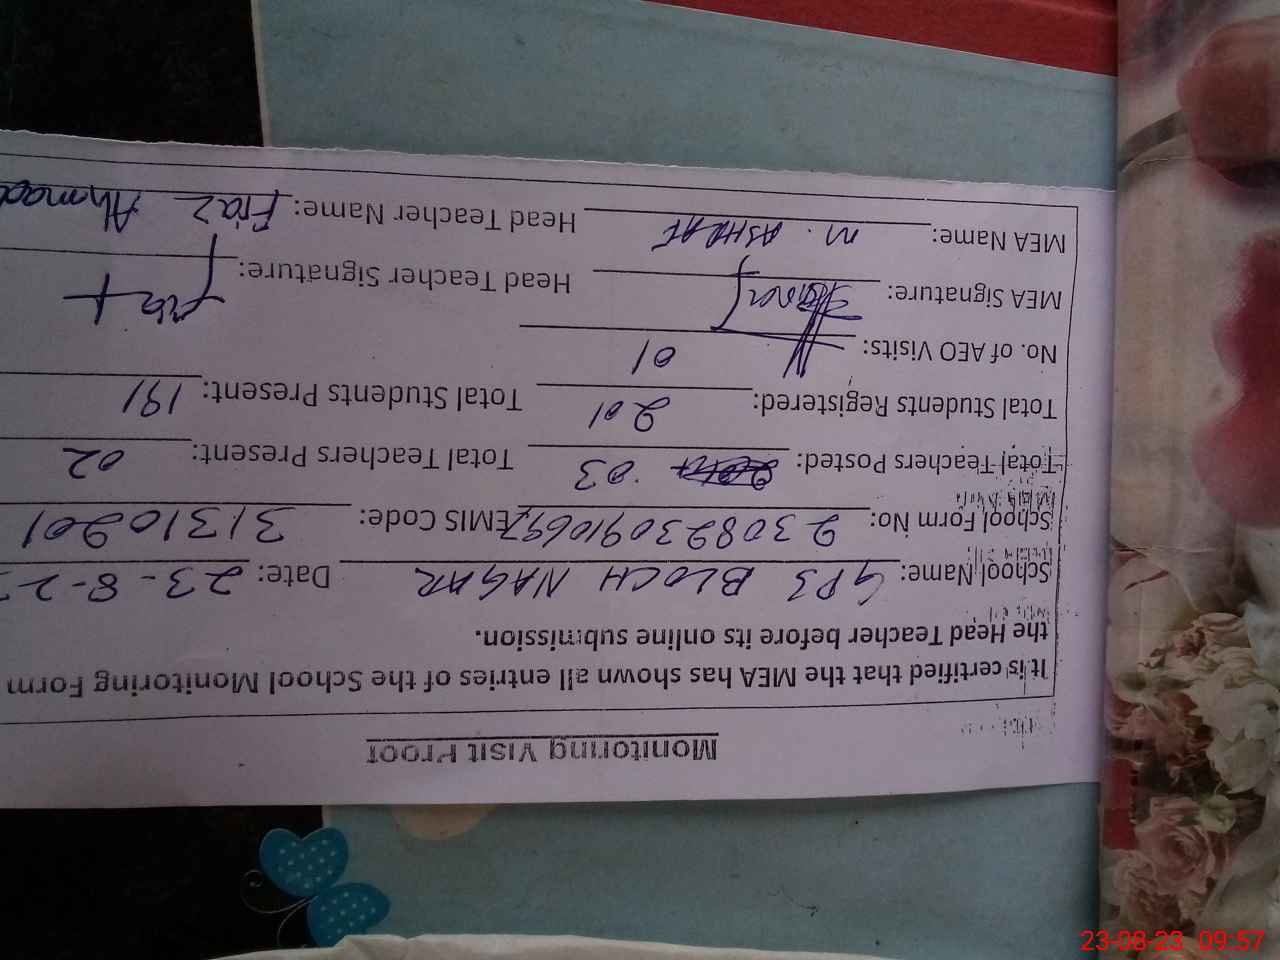 Monitoring Visit Proof
It is certified that the MEA has shown all entries of the School Monitoring Form
the Head Teacher before its online submission.
School Name: GPS BLOCH NAGAR Date: 23-8-2
School Form No: 230823091069 EMIS Code: 31310201
Total Teachers Posted: 03 Total Teachers Present: 02
Total Students Registered: 201 Total Students Present: 191
No. of AEO Visits: 01
MEA Signature: Head Teacher Signature:
MEA Name: M. ASHRAF Head Teacher Name: Fiaz Ahmad
23-08-23 09:57